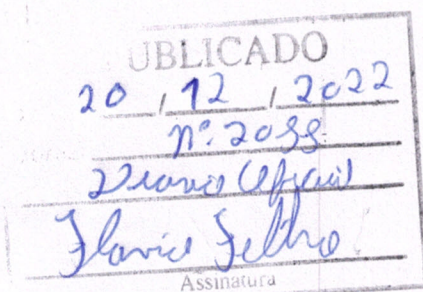 UBLICADO
20 / 12 / 2022
nº: 2099
Diario Oficial
Flavio
Assinatura